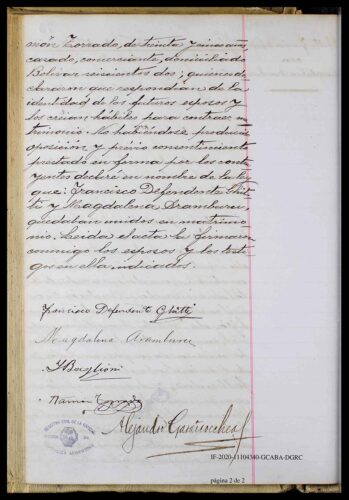 món Torrado, de treinta y cinco años,
casado, comerciante, domiciliado
Bolivar seiscientos dos; quienes de-
clararon que respondian de la
identidad de los futuros esposos y
los creian hábiles para contraer ma-
trimonio. No habiéndose producido
oposición y prévio consentimiento
prestado en forma por los contra-
yentes declaré en nombre de la ley
que: Francisco Defendente
y Magdalena Aramburu
quedaban unidos en matrimo-
nio. Leida el acta la firmaron
conmigo los esposos y los testi-
gos en ella indicados.
Francisco Defendente
Magdalena Aramburu
Ramon Torrado
Alejandro
REGISTRO CIVIL DE LA CAPITAL
REPUBLICA ARGENTINA
IF-2020-11104340-GCABA-DGRC
página 2 de 2